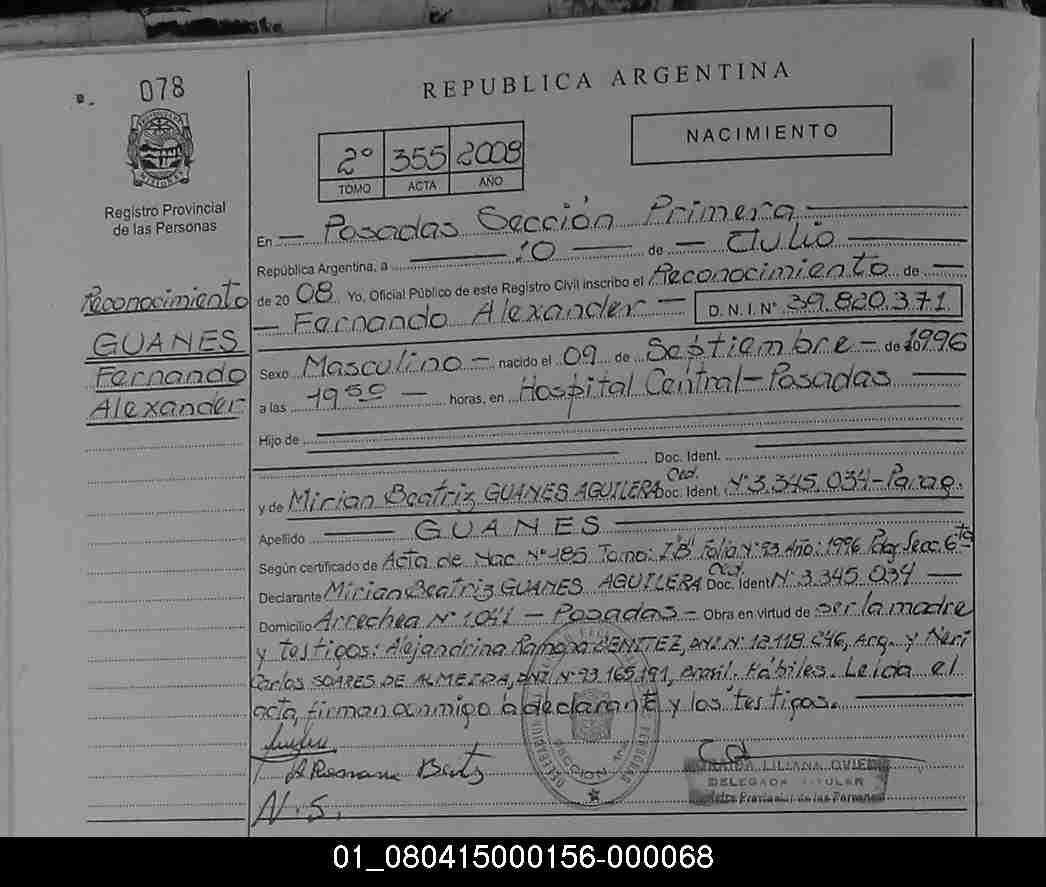 078
REPUBLICA ARGENTINA
NACIMIENTO
2º 355 2008
TOMO ACTA AÑO
Registro Provincial
de las Personas
En Posadas Sección Primera
República Argentina, a 10 de Julio
Reconocimiento
GUANES
Fernando
Alexander
de 2008 Yo, Oficial Público de este Registro Civil inscribo el Reconocimiento de
Fernando Alexander D.N.I Nº 39.820.371
Sexo Masculino nacido el 09 de Septiembre de 1996
a las 19 50 horas, en Hospital Central-Posadas
Hijo de
Doc. Ident.
y de Mirian Beatriz GUANES AGUILERA Ced. Doc. Ident. Nº 3.345.034-Parag.
Apellido GUANES
Según certificado de Acta de Nac. Nº 185 Tomo: Folio Nº 93 Año: 1996 Secc. 6ta
Declarante Mirian Beatriz GUANES AGUILERA Ced. Doc. Ident Nº 3.345.034
Domicilio Arrechea Nº 1.041 - Posadas - Obra en virtud de ser la madre
y testigos: Alejandrina Ramona BENITEZ, DNI Nº Arg. y Neri
Carlos SOARES DE ALMEIDA, DNI Nº 93.165.191, Brasil. Hábiles. Leida el
acta, firman conmigo la declarante y los testigos.
LILIANA OVIEDO
DELEGADA TITULAR
Registro Provincial de las Personas
N. S.
01_080415000156-000068